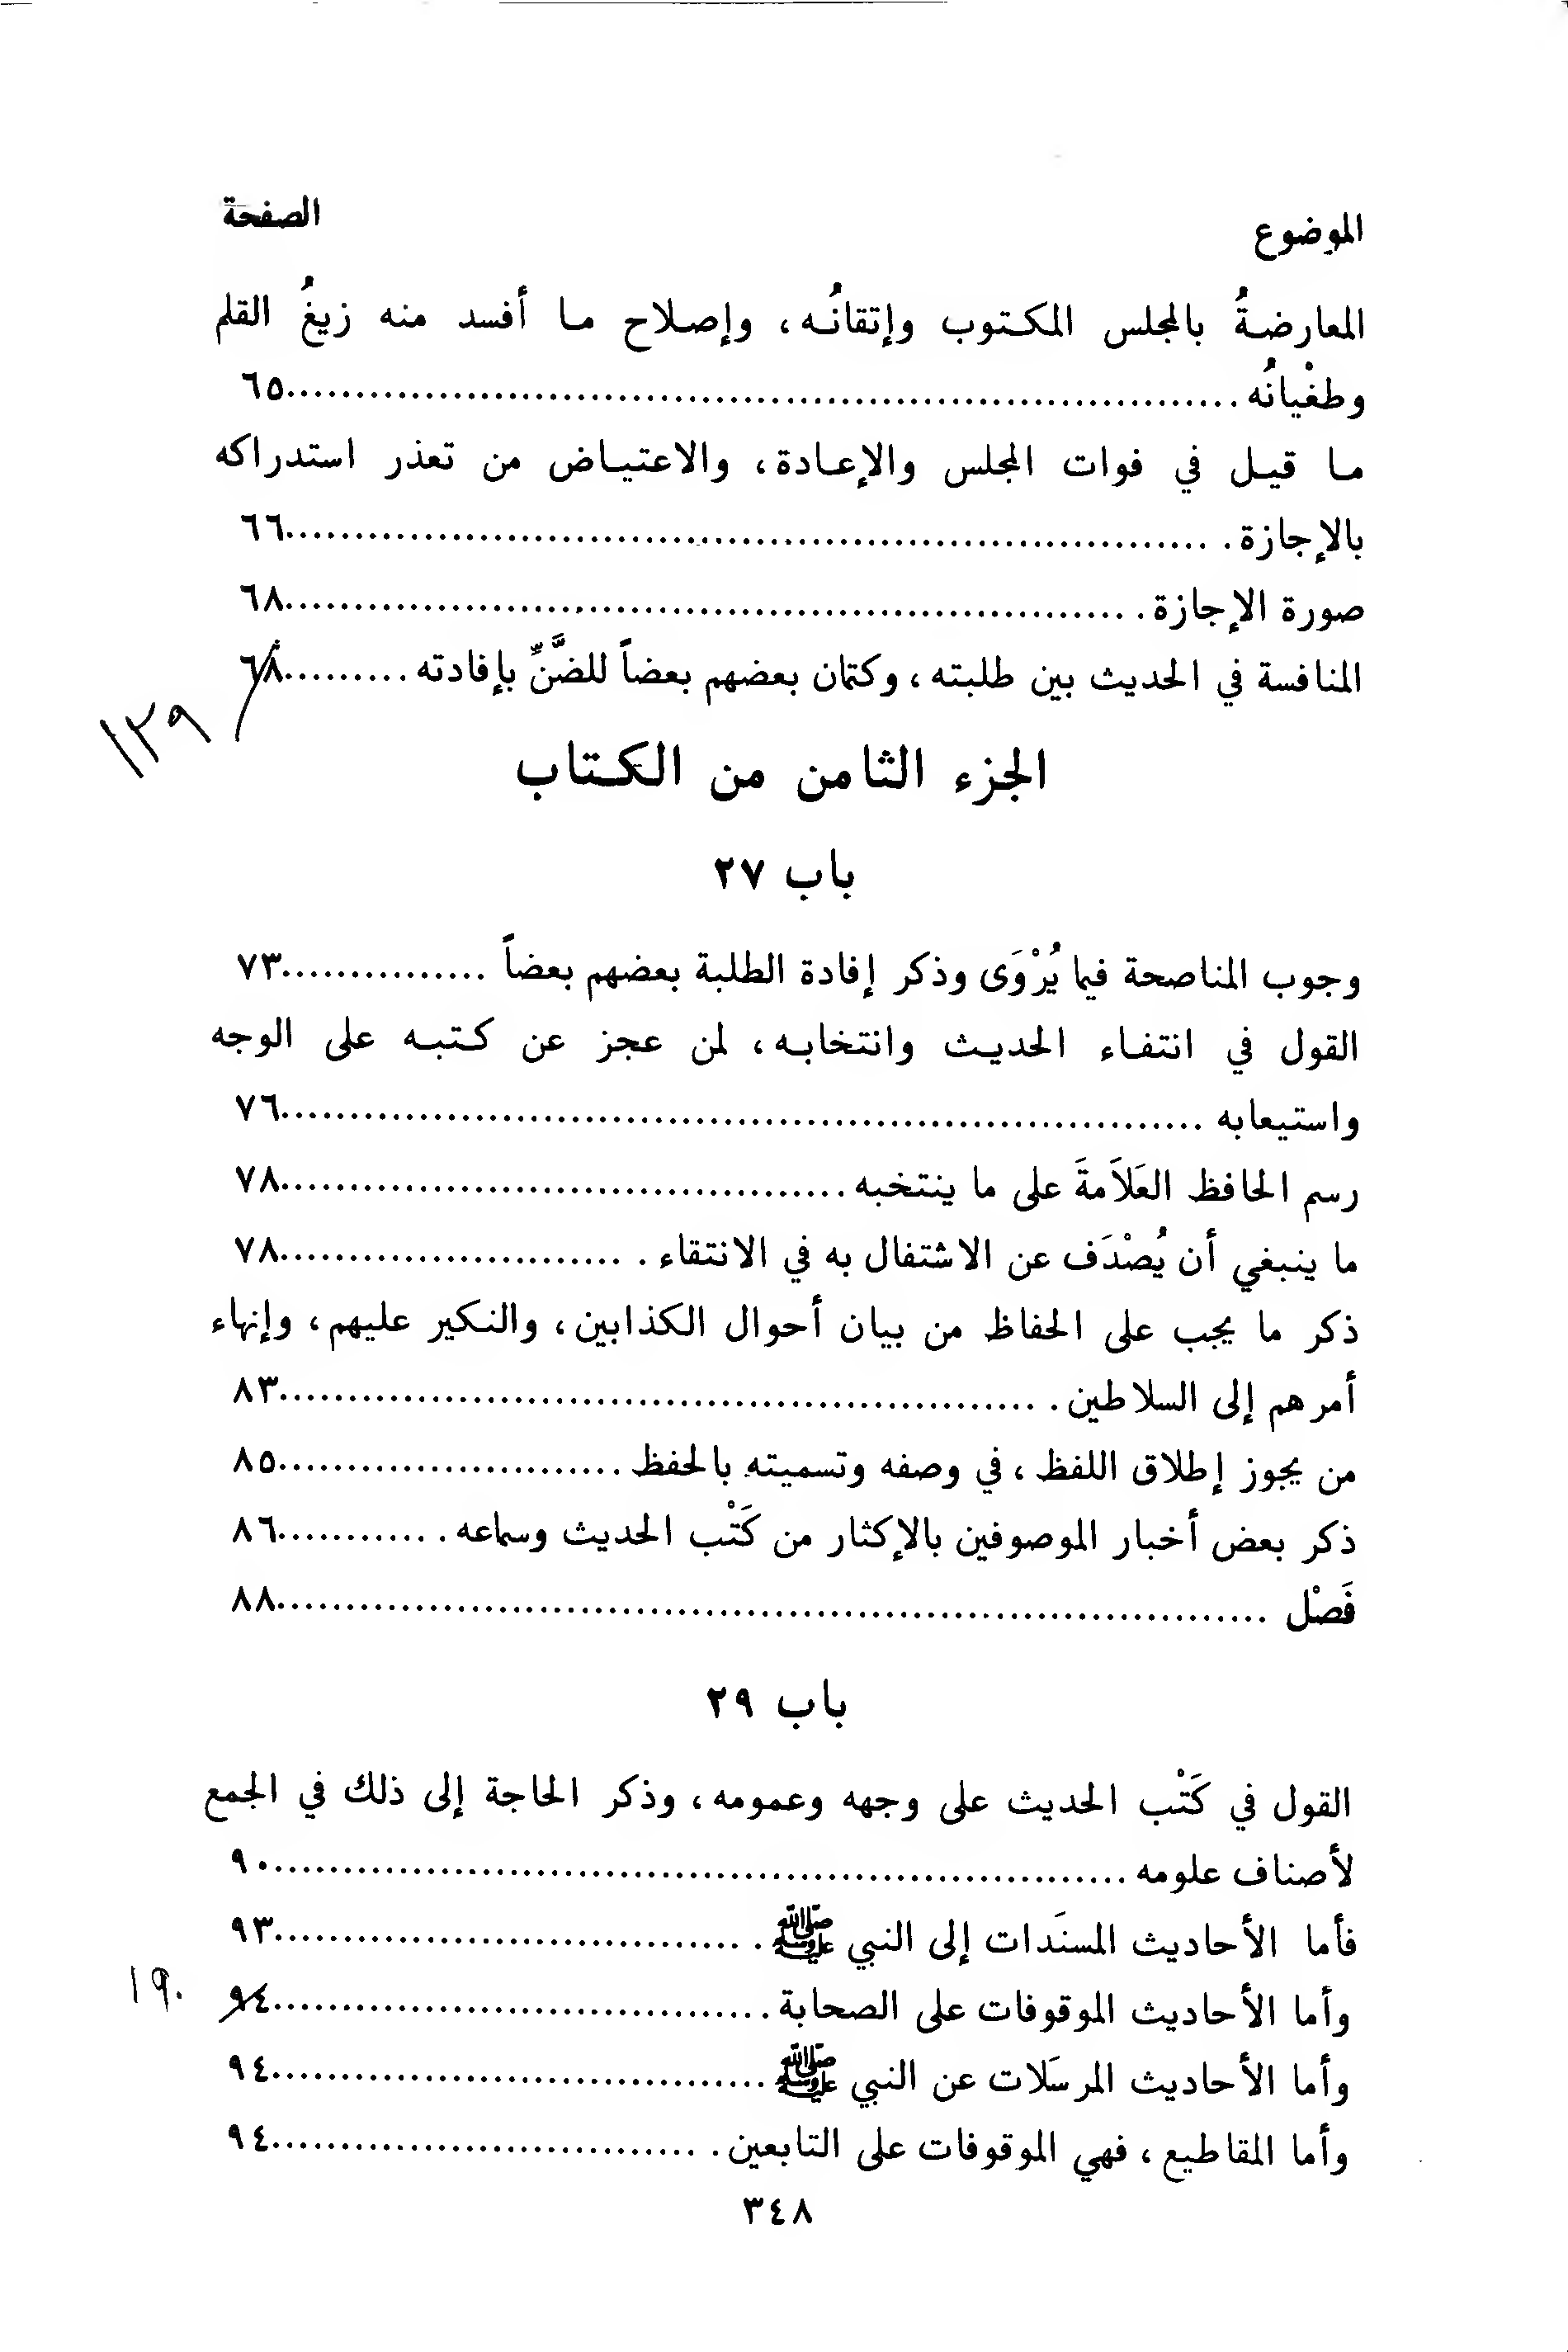 الموضوع الصفحة
المعارضةُ بالمجلس المكتوب وإتقانُه، وإصلاح ما أفسد منه زيغُ القلم
وطغْيانُه ........ ٦٥
ما قيل في فوات المجلس والإعادة، والاعتياض من تعذر استدراكه
بالإجازة ........ ٦٦
صورة الإجازة ........ ٦٨
المنافسة في الحديث بين طلبته، وكتمان بعضهم بعضاً للضَّنِّ بإفادته ........ ٦٨
١٢٩
الجزء الثامن من الكتاب
باب ٢٧
وجوب المناصحة فيما يُرْوَى وذكر إفادة الطلبة بعضهم بعضاً ........ ٧٣
القول في انتفاء الحديث وانتخابه، لمن عجز عن كتبه على الوجه
واستيعابه ........ ٧٦
رسم الحافظ العَلاَمةَ على ما ينتخبه ........ ٧٨
ما ينبغي أن يُصْدَف عن الاشتفال به في الانتقاء ........ ٧٨
ذكر ما يجب على الحفاظ من بيان أحوال الكذابين، والنكير عليهم، وإنهاء
أمرهم إلى السلاطين ........ ٨٣
من يجوز إطلاق اللفظ، في وصفه وتسميته بالحفظ ........ ٨٥
ذكر بعض أخبار الموصوفين بالإكثار من كَتْب الحديث وسماعه ........ ٨٦
فَصْل ........ ٨٨
باب ٢٩
القول في كَتْب الحديث على وجهه وعمومه، وذكر الحاجة إلى ذلك في الجمع
لأصناف علومه ........ ٩٠
فأما الأحاديث المسنَدات إلى النبي ﷺ ........ ٩٣
وأما الأحاديث الموقوفات على الصحابة ........ ٩٤ ١٩٠
وأما الأحاديث المرسَلات عن النبي ﷺ ........ ٩٤
وأما المقاطيع، فهي الموقوفات على التابعين ........ ٩٤
٣٤٨